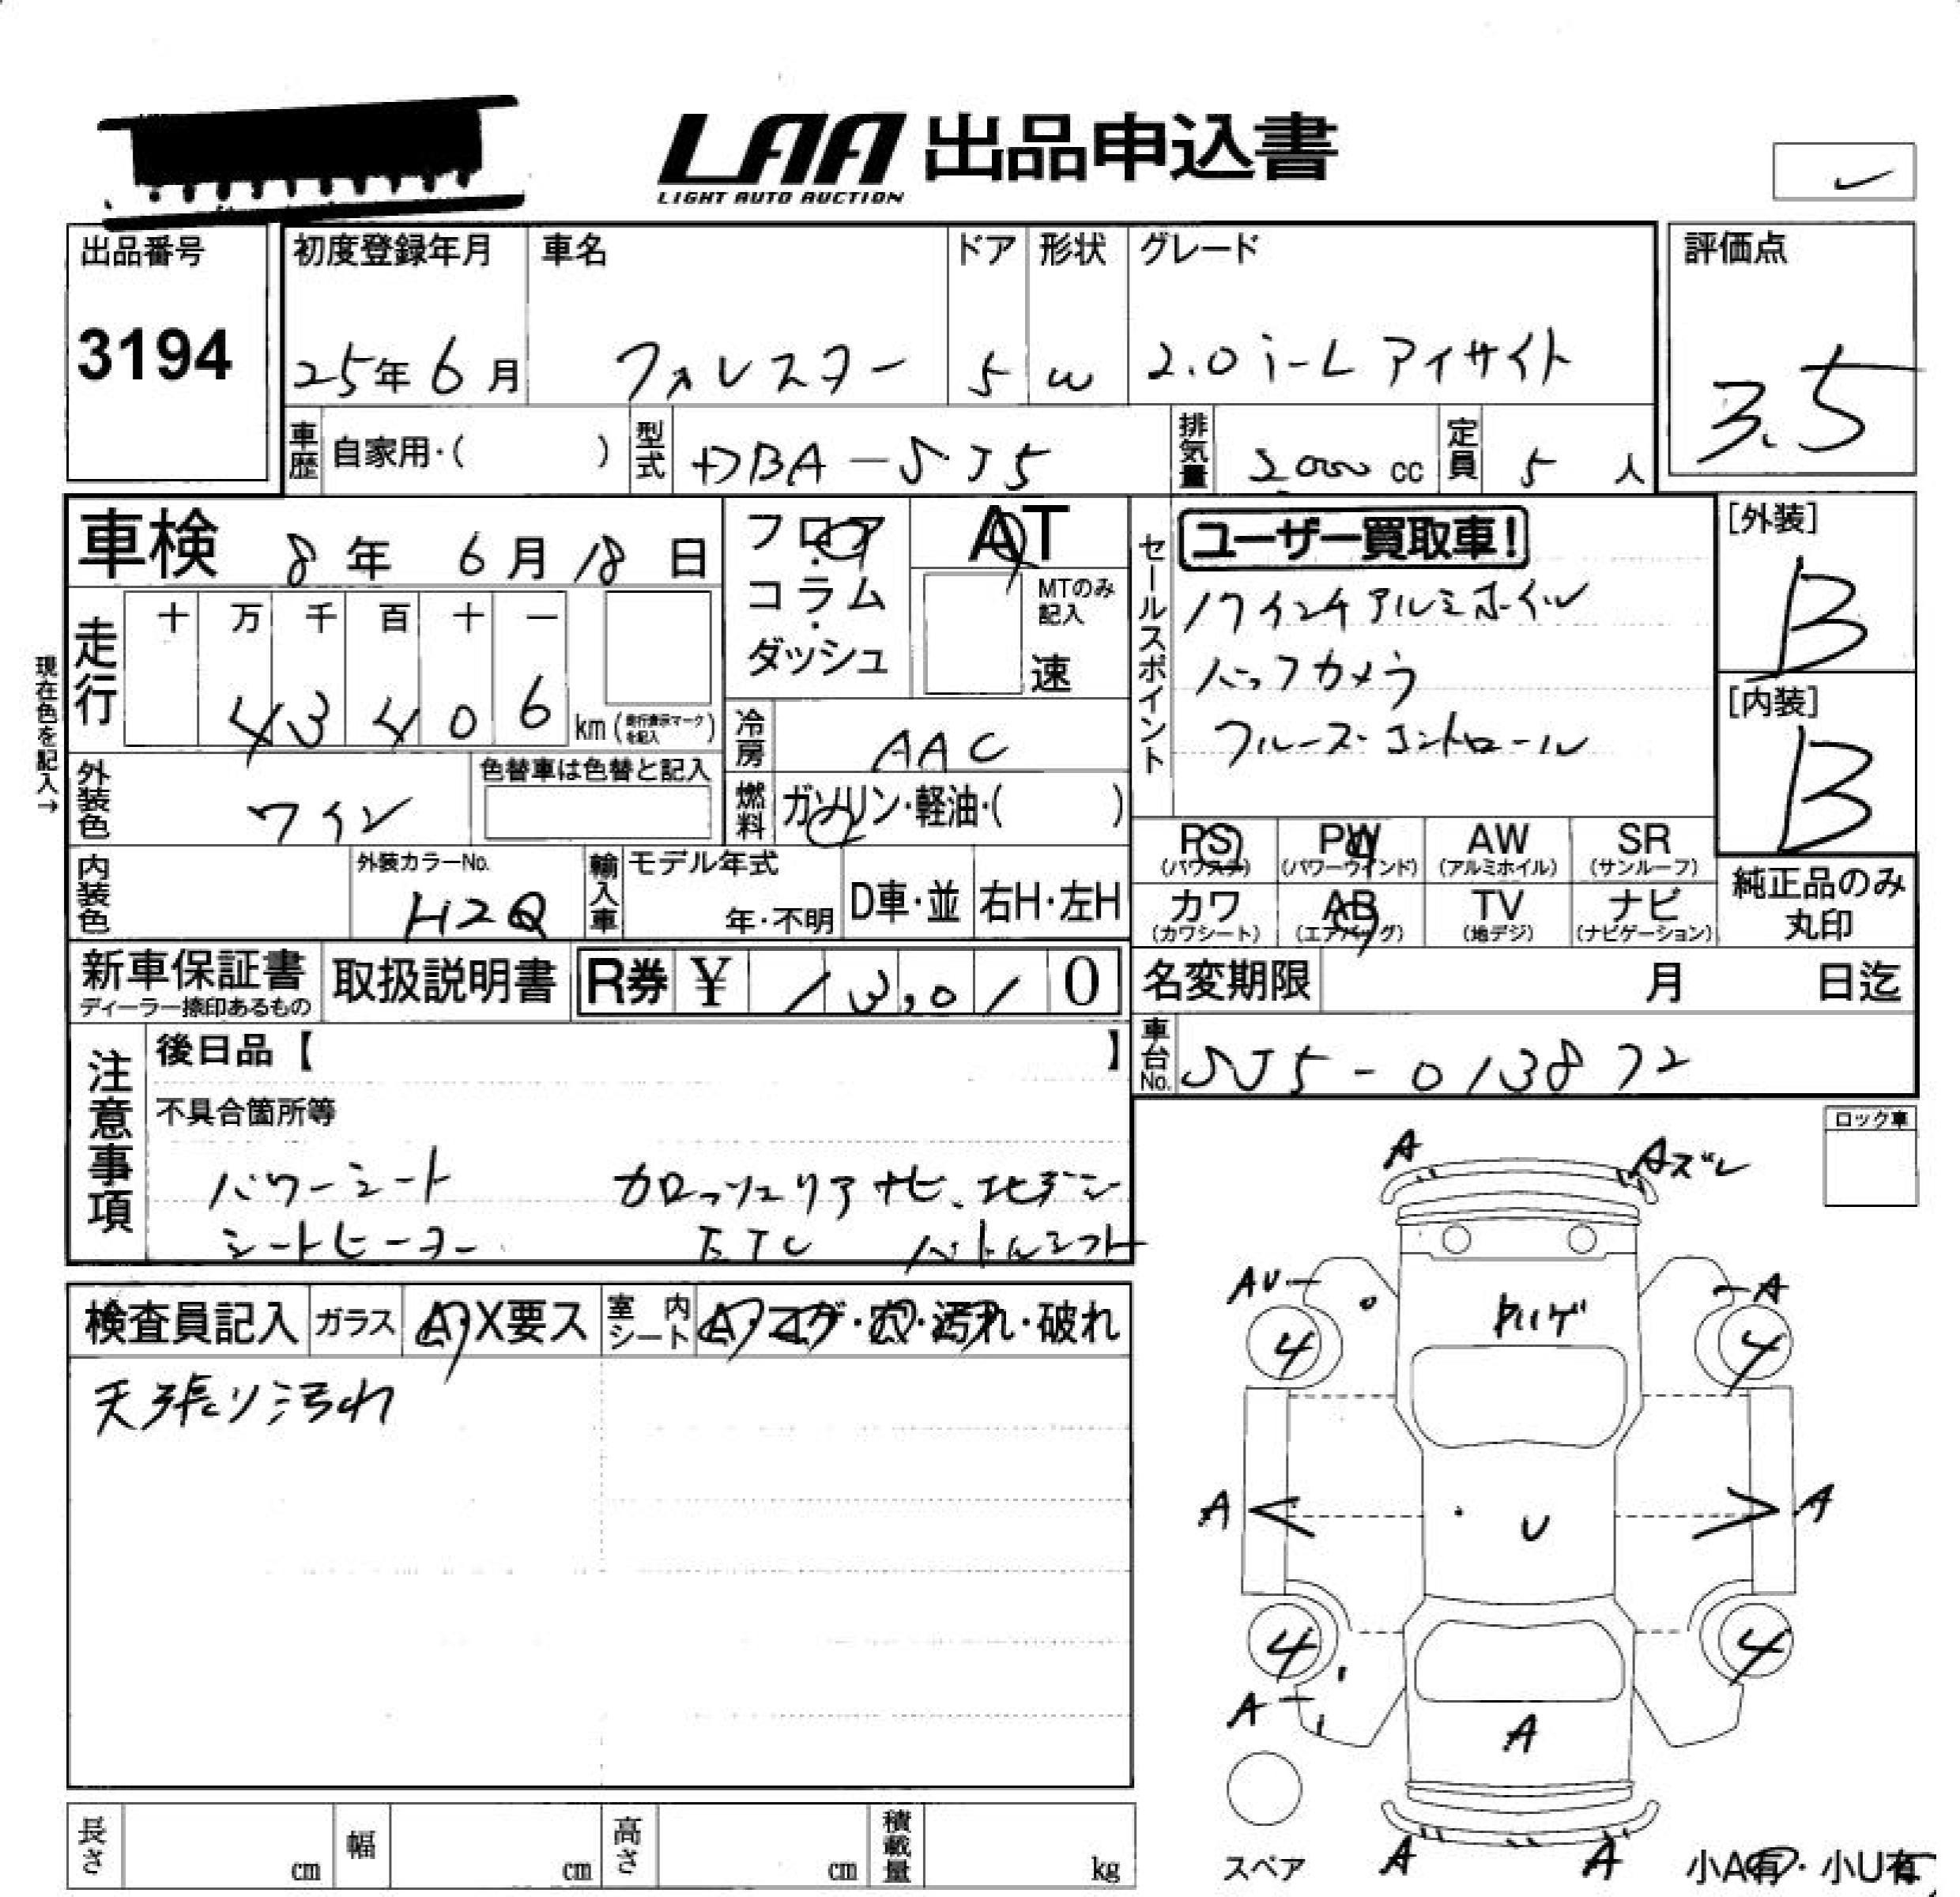 LAA 出品申込書
LIGHT AUTO AUCTION
出品番号
3194
初度登録年月
25年 6月
車名
フォレスター
ドア
5
形状
W
グレード
2.0i-L アイサイト
評価点
3.5
車歴
自家用・( )
型式
DBA-SJ5
排気量
2000 cc
定員
5 人
車検 8年 6月 18日
フロア・コラム・ダッシュ
AT
MTのみ記入
速
セールスポイント
ユーザー買取車!
17インチアルミホイル
バックカメラ
クルーズコントロール
[外装]
B
[内装]
B
現在色を記入→
走行
十 万 千 百 十 一
4 3 4 0 6
km(走行表示マークを記入)
冷房
AAC
外装色
ワイン
色替車は色替と記入
燃料
ガソリン・軽油・( )
PS PW AW SR
(パワステ) (パワーウインド) (アルミホイル) (サンルーフ)
カワ AB TV ナビ
(カワシート) (エアバッグ) (地デジ) (ナビゲーション)
純正品のみ丸印
内装色
外装カラーNo.
H2Q
輸入車
モデル年式
年・不明
D車・並
右H・左H
新車保証書
ディーラー捺印あるもの
取扱説明書
R券 ¥ 13,010
名変期限 月 日迄
車台No.
SJ5-013872
注意事項
後日品【 】
不具合箇所等
パワーシート カロッツェリアナビ、地デジ
シートヒーター ETC パドルシフト
ロック車
検査員記入
ガラス
A・X要ス
室内シート
A・コゲ・穴・汚れ・破れ
天張り汚れ
A Aズレ
AU A
4 4
A U A
4 4
A
A
A A
スペア
小A有・小U有
長さ cm
幅 cm
高さ cm
積載量 kg